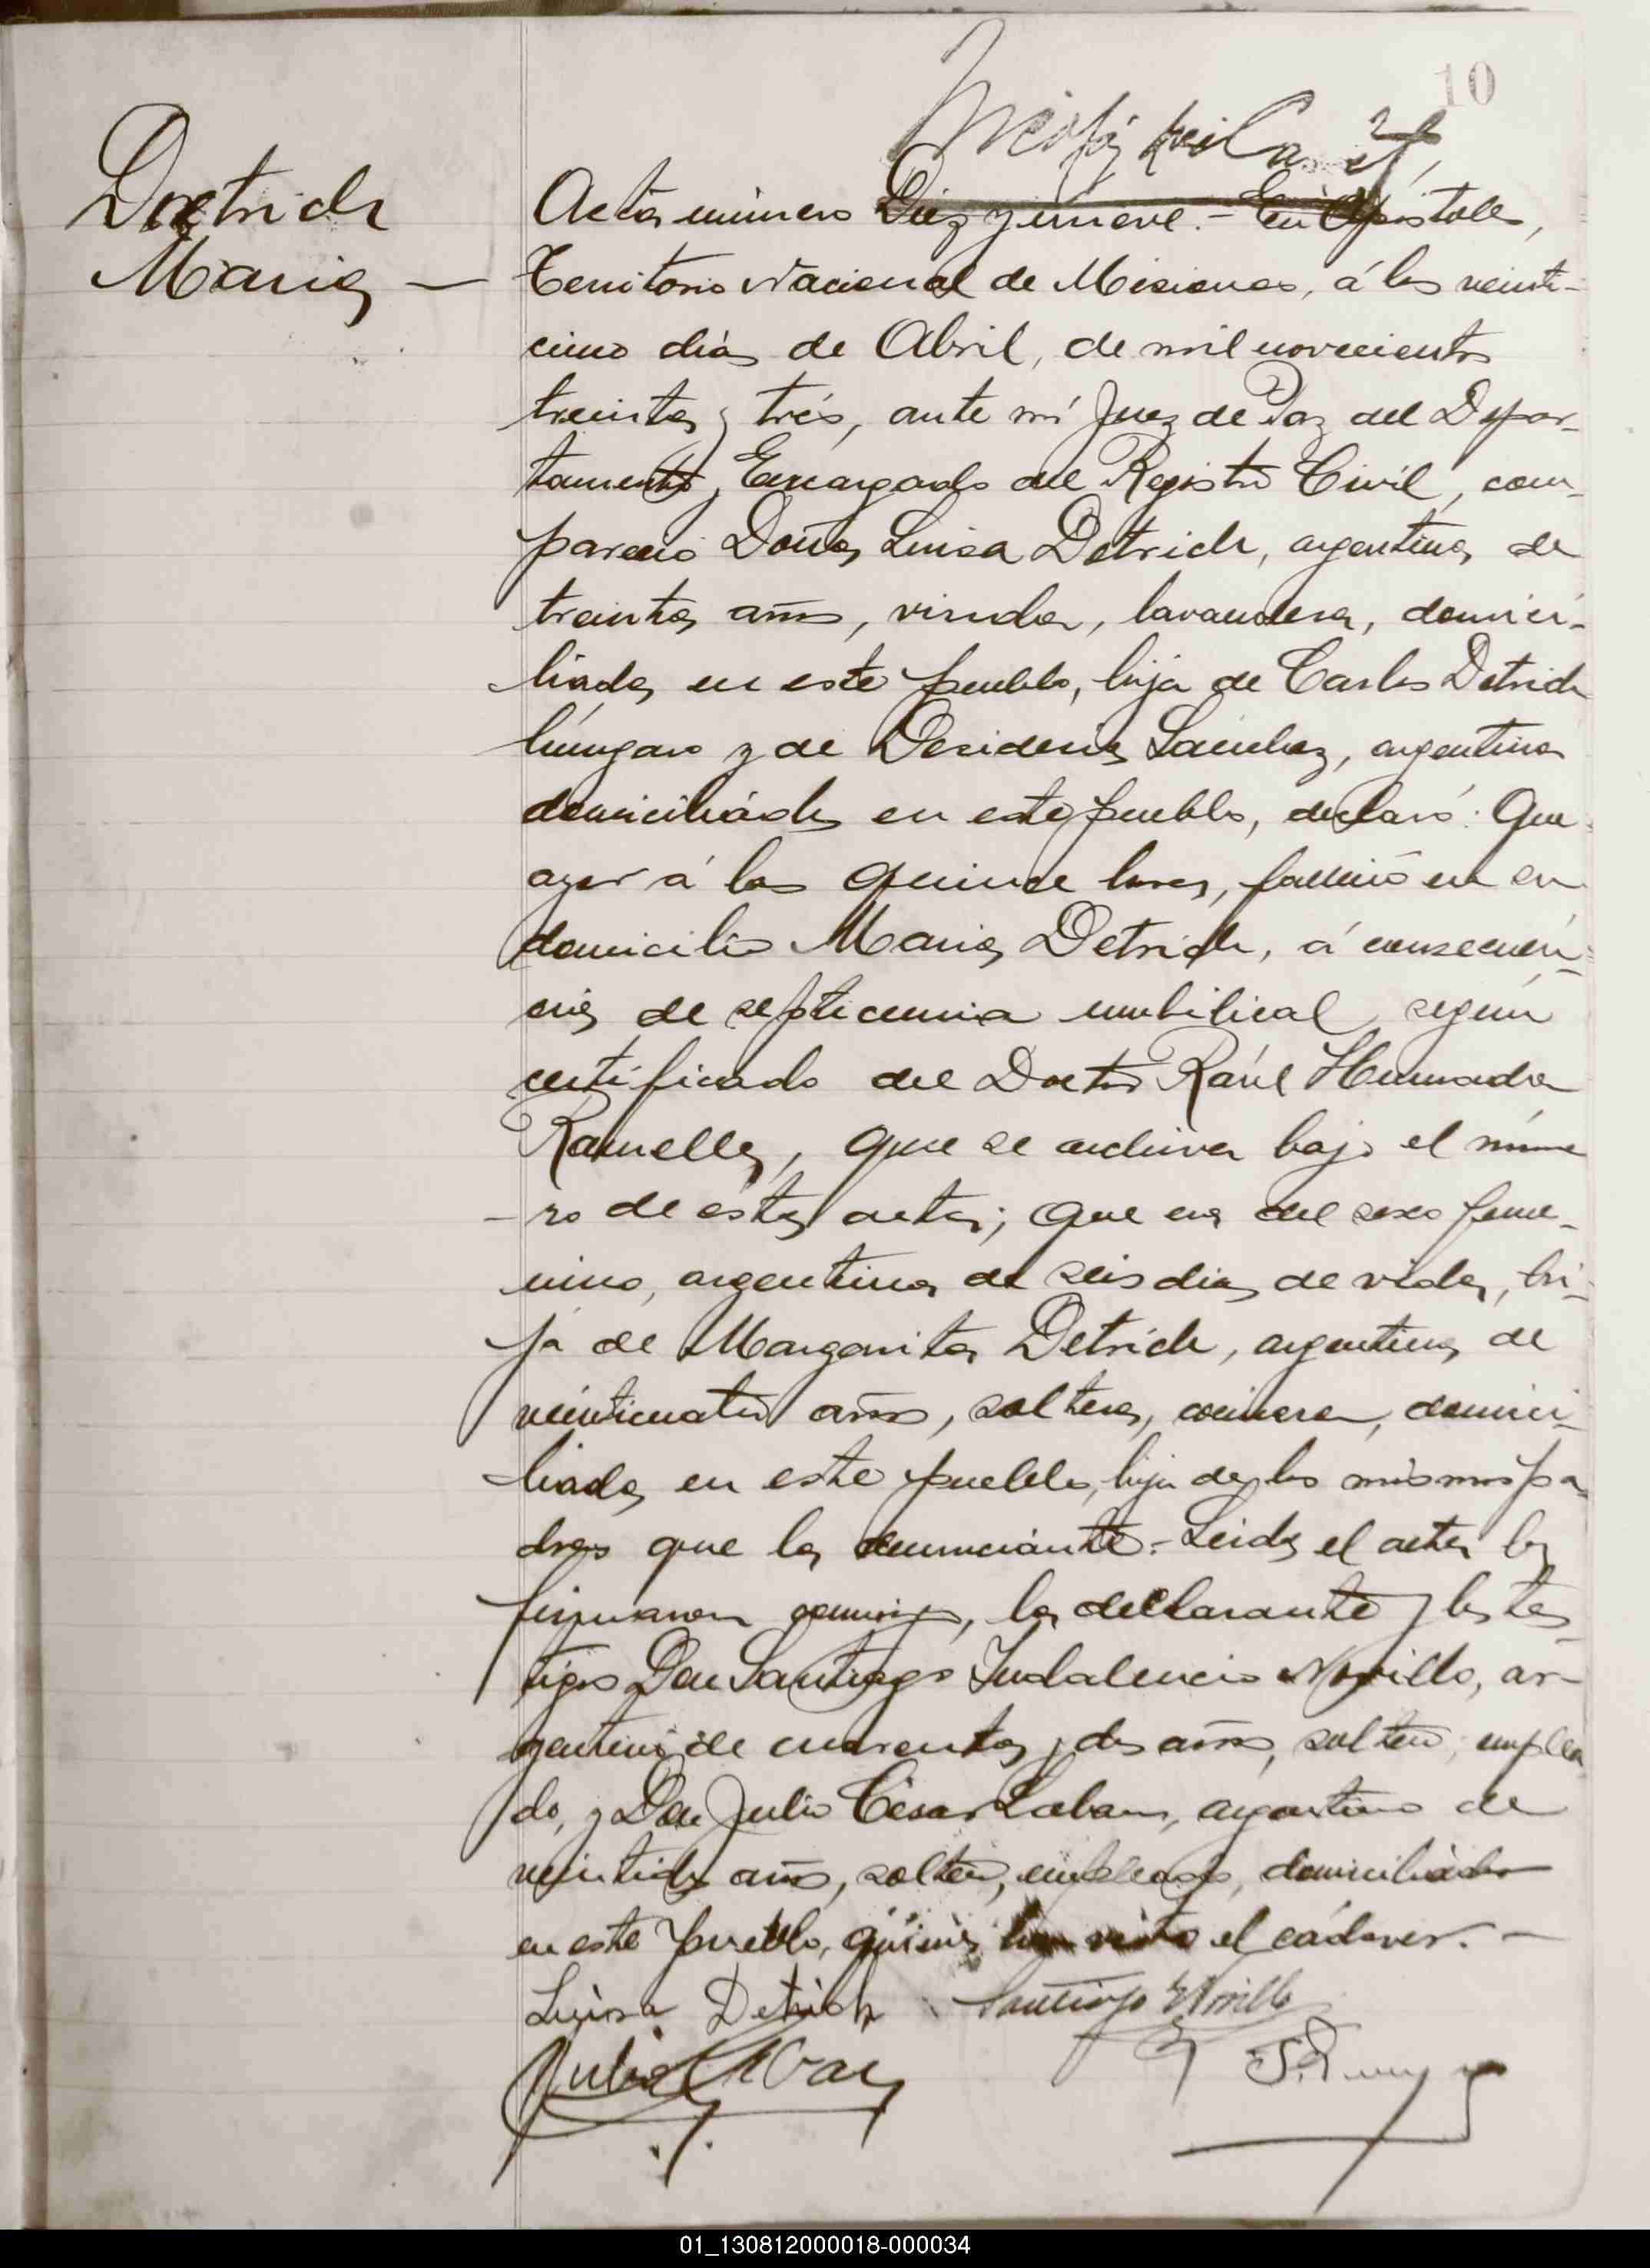 10
Detrich
Maria —
Acta número Diez y nueve. - En Apóstoles,
Territorio Nacional de Misiones, á los veinti-
cinco dias de Abril, de mil novecientos
treinta y trés, ante mí Juez de Paz del Depar-
tamento, Encargado del Registro Civil, com-
pareció Doña Luisa Detrich, argentina, de
treinta años, viuda, lavandera, domici-
liada, en este pueblo, hija de Carlos Detrich
húngaro y de Desideria Sánchez, argentina
domiciliados en este pueblo, declaró: Que
ayer á las quince horas, falleció en su
domicilio Maria Detrich, á consecuen-
cia de septicemia umbilical, según
certificado del Doctor Raúl
que se archiva bajo el núme
- ro de ésta acta; que era del sexo feme-
nino, argentina de seis dias de vida, hi-
ja de Margarita Detrich, argentina, de
veinticuatro años, soltera, cocinera, domici-
liada, en este pueblo, hija de los mismos pa-
dres que la denunciante. - Leida el acta la
firmaron conmigo, la declarante y los tes-
tigos Don Santiago Indalencio Morillo, ar-
gentino de cuarenta y dos años, soltero, emplea-
do, y Don Julio César argentino de
veintidos años, soltero, empleado, domiciliados
en este pueblo, quienes han visto el cadáver. —
Luisa Detrich Santiago Morillo
Julio